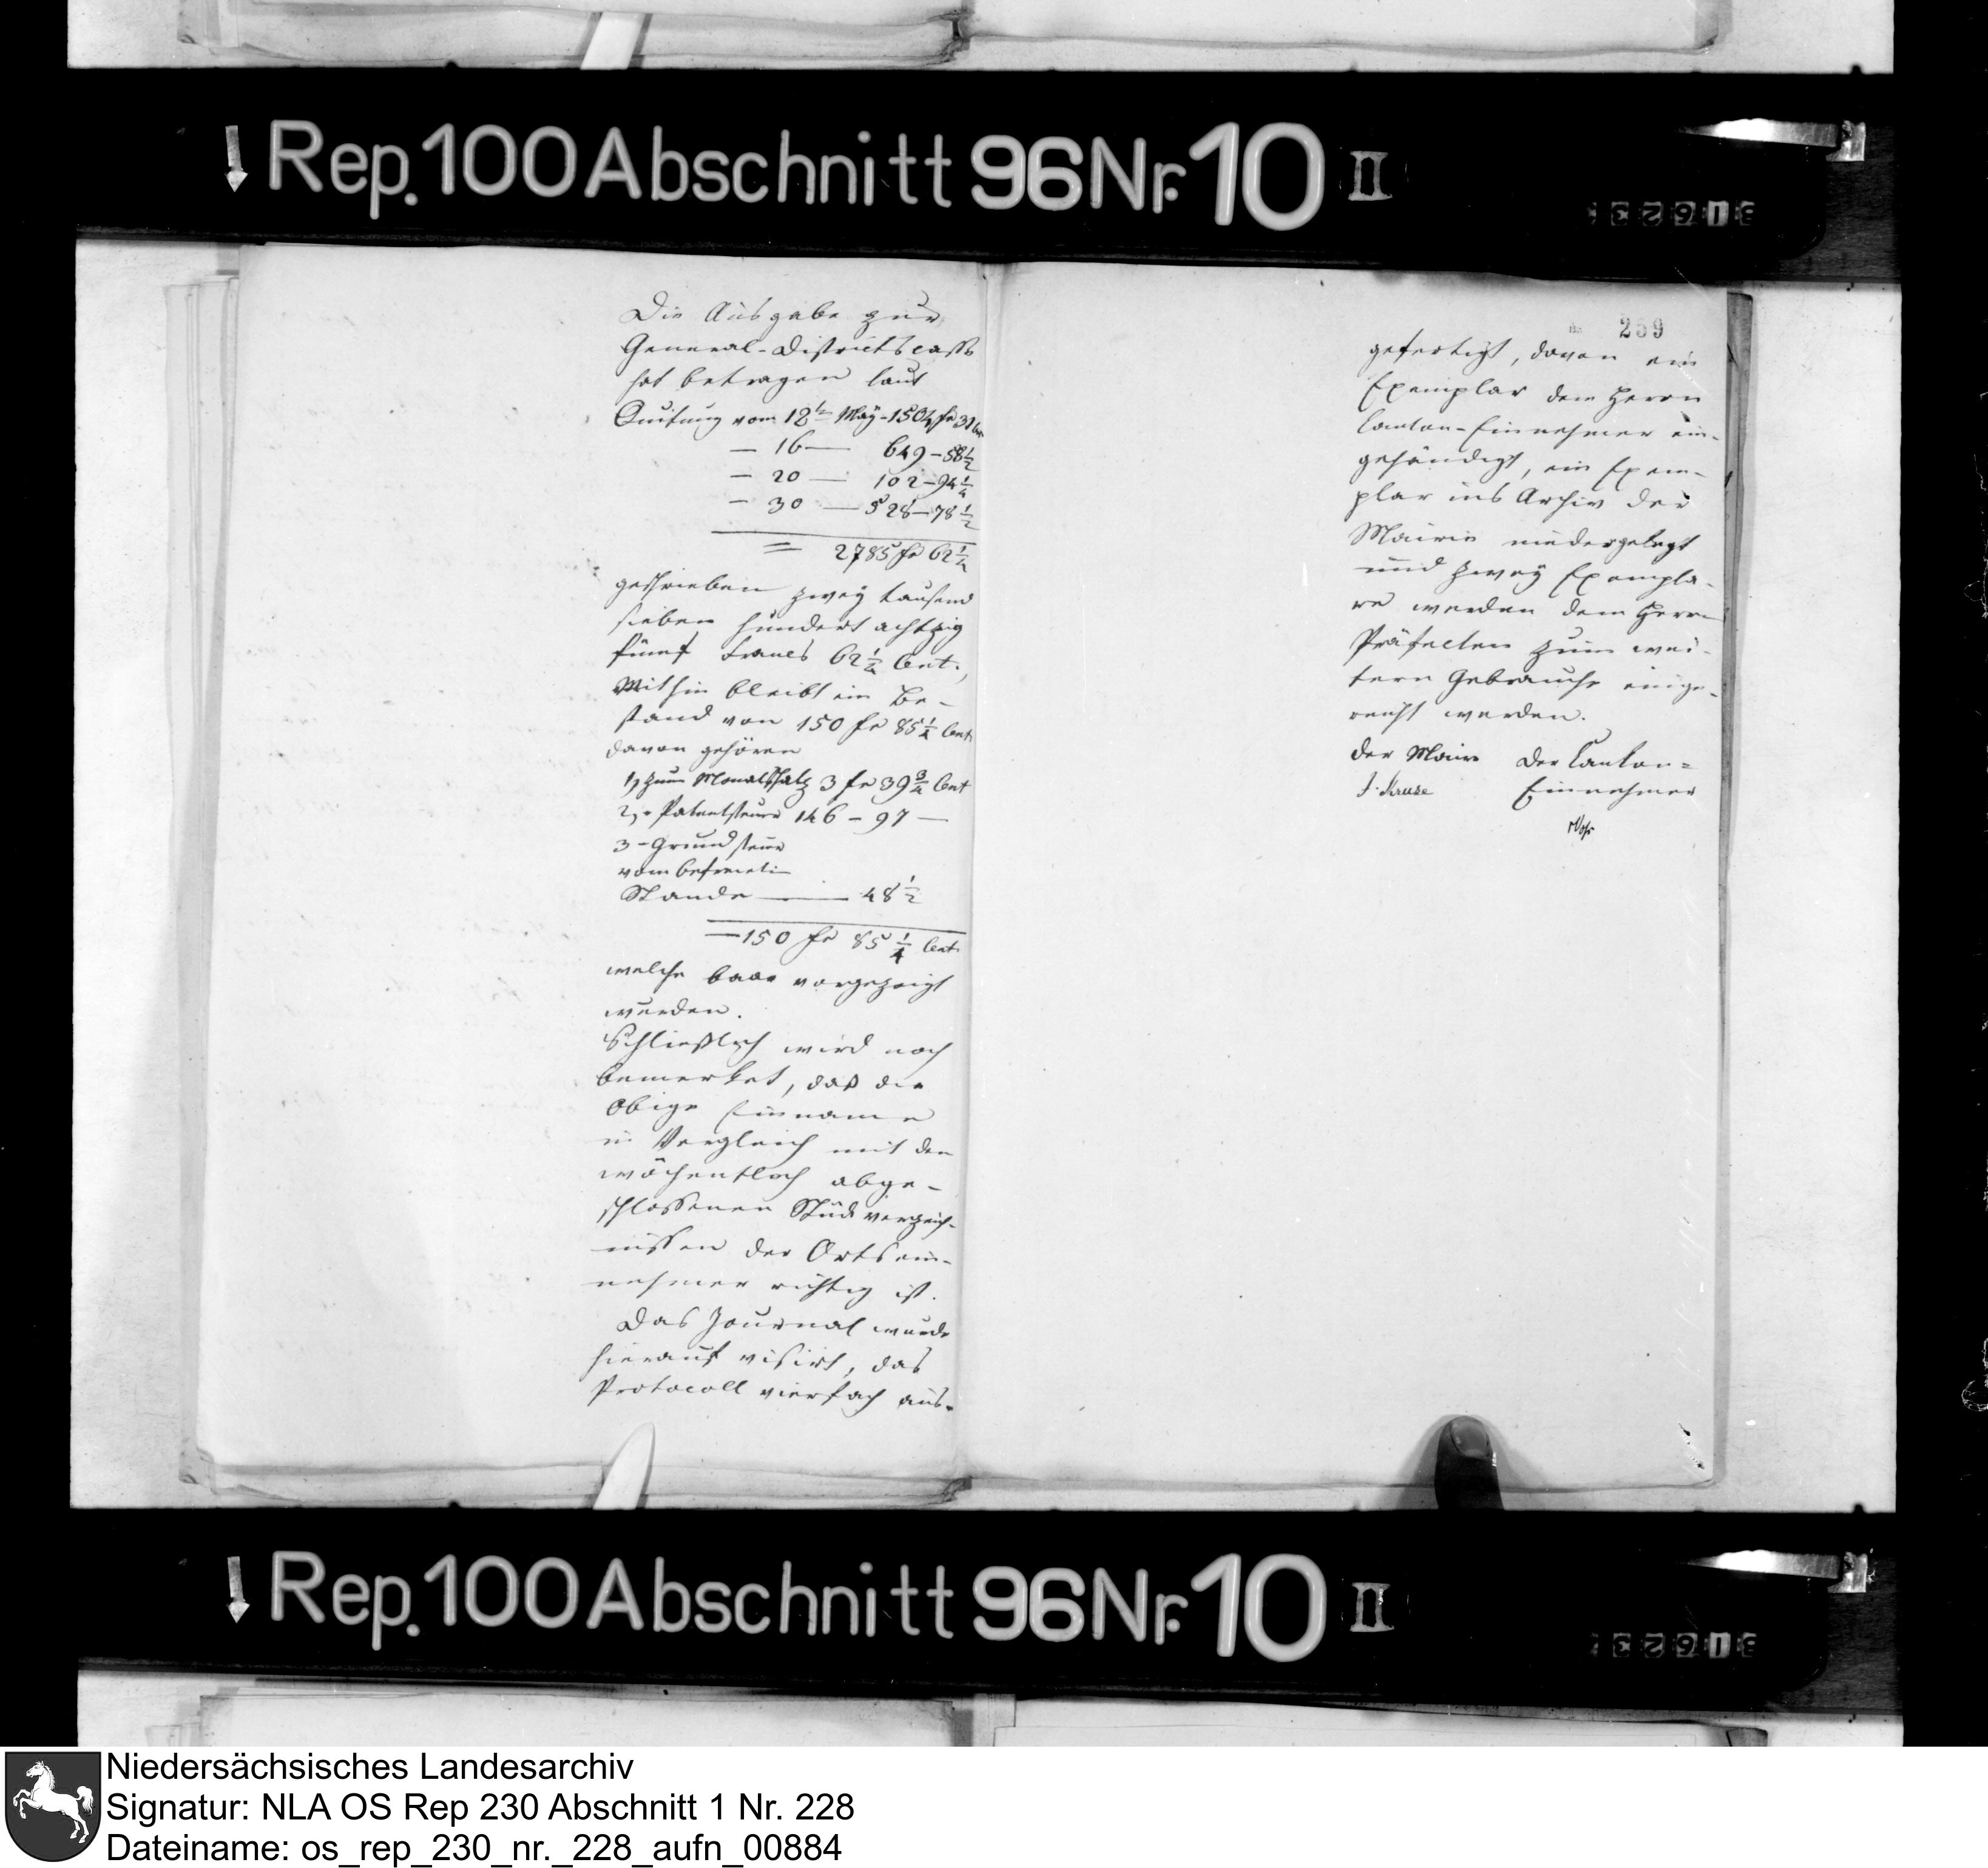 Rep. 100 Abschnitt 96 Nr. 10 II
31623
Die Ausgabe zur
General-Districtscasse
hat betragen laut
Quitung vom 12ten May - 1504 fr 31
— 16 — 649 - 58 1/2
— 20 — 102 - 94 1/4
— 30 — 528 - 78 1/2
= 2785 fr 62 1/4
geschrieben zwey tausend
sieben hundert achtzig
fünf Francs 62 1/4 Cent.,
Mithin bleibt ein Be-
stand von 150 fr 85 1/4 Cent.
davon gehören
1, zum Monatssatz 3 fr 39 3/4 Cent
2, - Patentsteuer 146 - 97 —
3 - Grundsteuer
vom befreieten
Stande — 48 1/2
— 150 fr 85 1/4 Cent.
welche baar vorgezeigt
wurden.
Schließlich wird noch
bemerket, daß die
Obige Einname
in Vergleich mit den
wöchentlich abge-
schlossenen Stück verzeich-
nissen der Ortsein-
nehmer richtig ist.
Das Journal wurde
hierauf visirt, das
Protocoll vierfach aus-
259
gefertigt, davon ein
Exemplar dem Herrn
Canton-Einnehmer ein-
gehändigt, ein Exem-
plar ins Archiv der
Mairie niedergelegt
und zwey Exempla-
re werden dem Herrn
Präfecten zum wei-
tern Gebrauche einge-
reicht werden.
der Maire Der Canton=
J. Kruse Einnehmer
Rep. 100 Abschnitt 96 Nr. 10 II
31623
Niedersächsisches Landesarchiv
Signatur: NLA OS Rep 230 Abschnitt 1 Nr. 228
Dateiname: os_rep_230_nr._228_aufn_00884